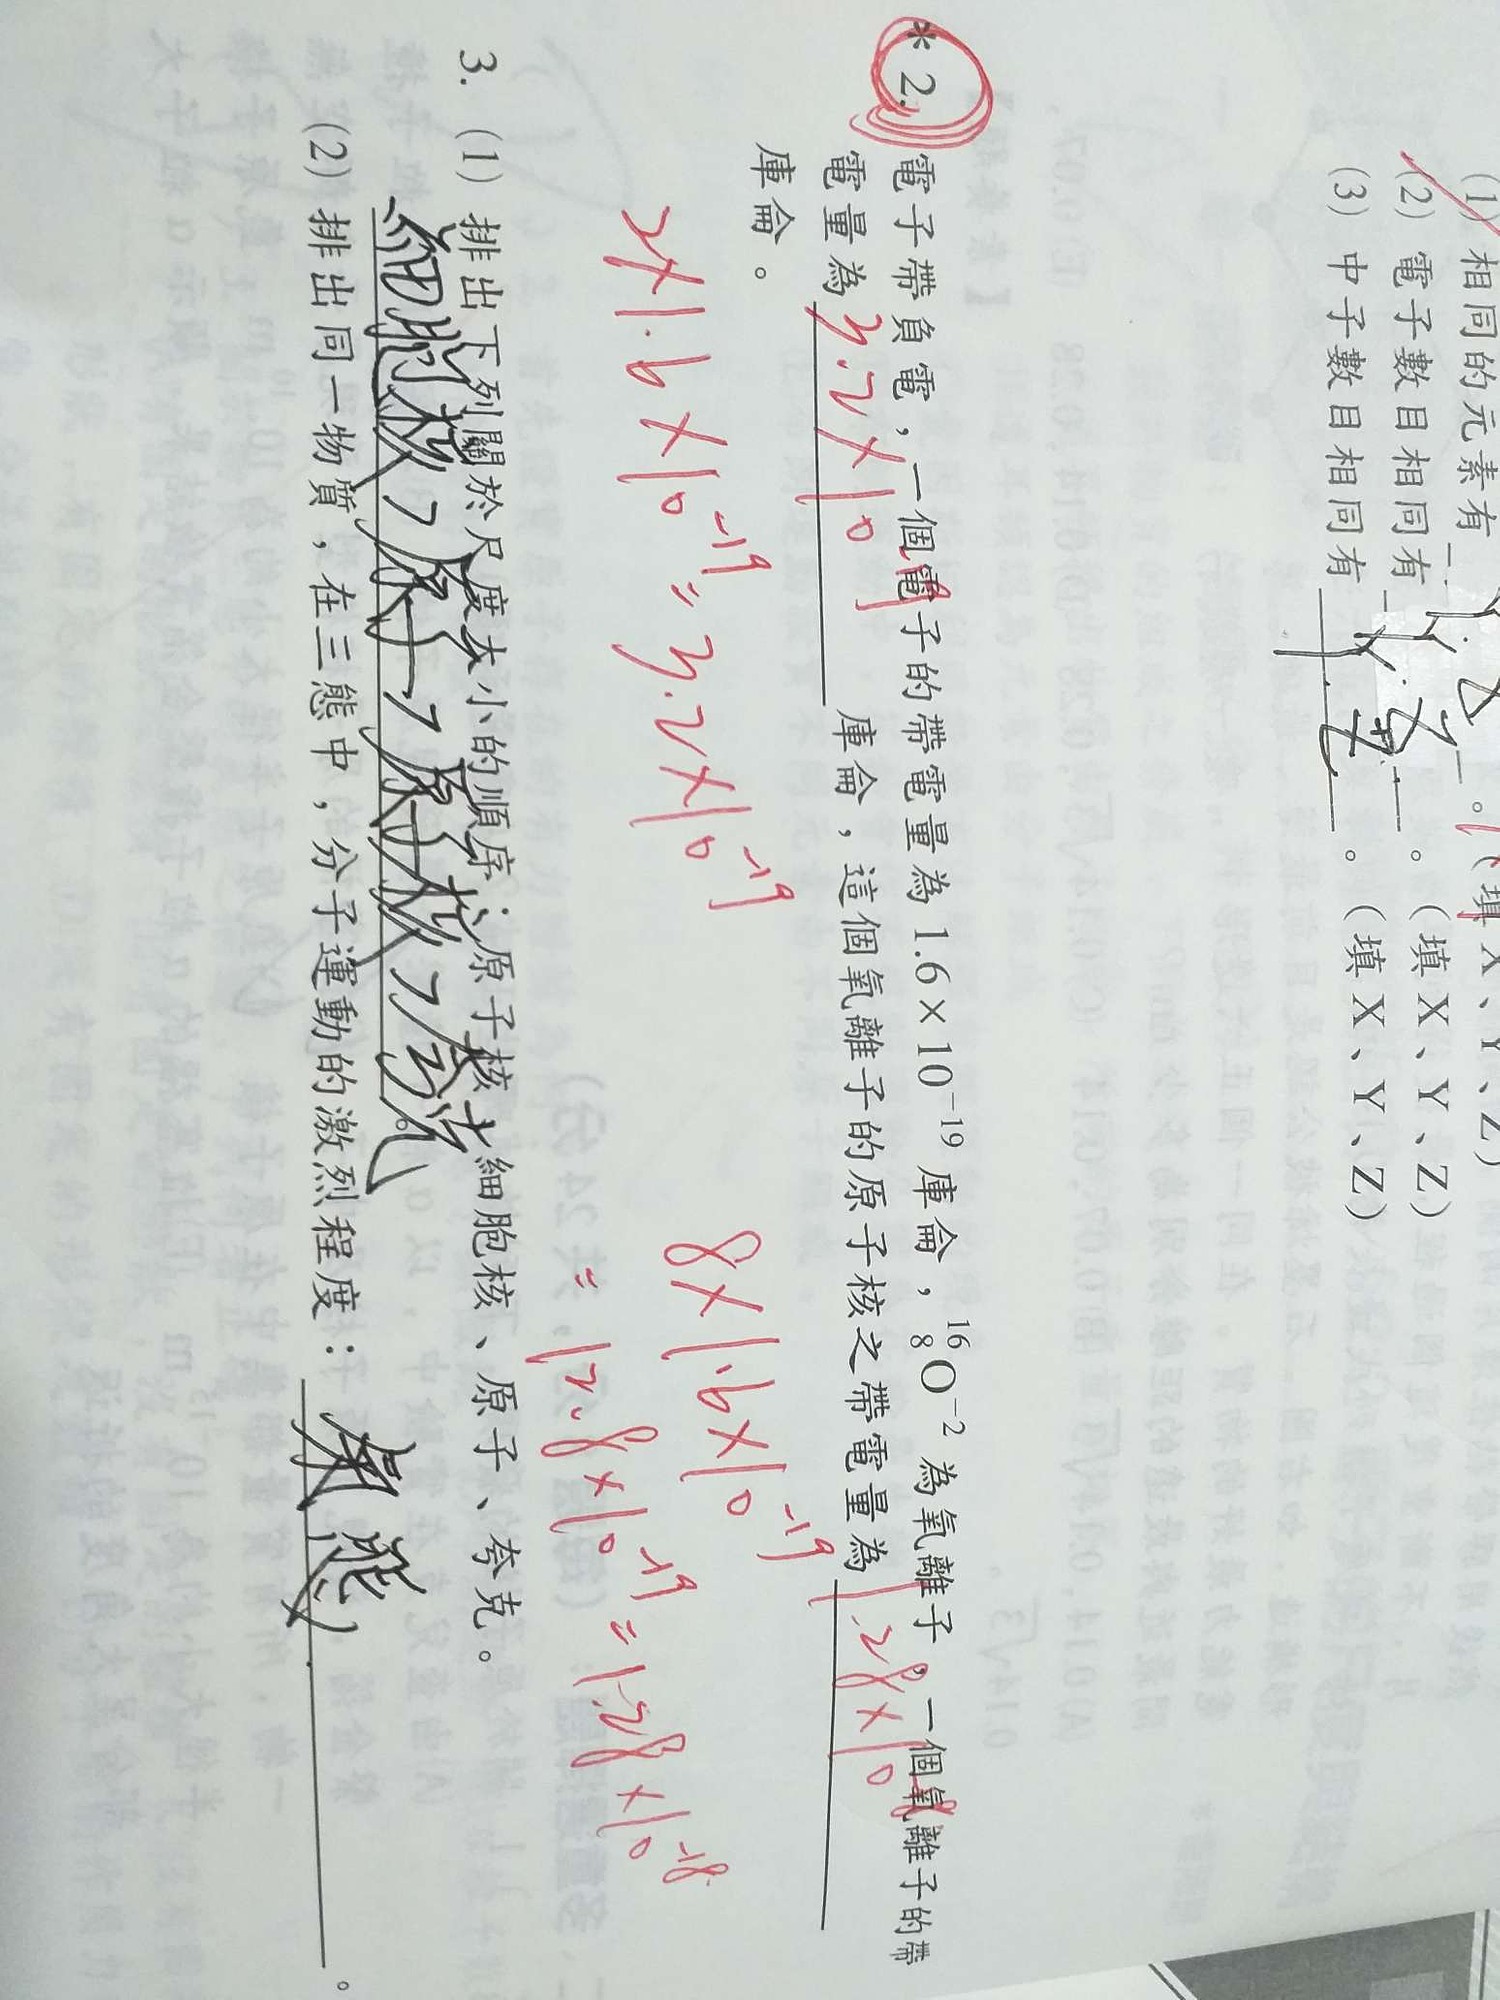 (1) 相同的元素有
。(填 X、Y、Z)
(2) 電子數目相同有 Y.Z 。(填 X、Y、Z)
(3) 中子數目相同有 Y.Z 。(填 X、Y、Z)
*2. 電子帶負電，一個電子的帶電量為 1.6×10⁻¹⁹ 庫侖，¹⁶₈O⁻² 為氧離子，一個氧離子的帶
電量為 3.2×10⁻¹⁹ 庫侖，這個氧離子的原子核之帶電量為 1.28×10⁻¹⁸
庫侖。
2×1.6×10⁻¹⁹=3.2×10⁻¹⁹
8×1.6×10⁻¹⁹
=12.8×10⁻¹⁹=1.28×10⁻¹⁸
3. (1) 排出下列關於尺度大小的順序：原子核、細胞核、原子、夸克。
細胞核>原子>原子核>夸克
(2) 排出同一物質，在三態中，分子運動的激烈程度： 氣態> 。